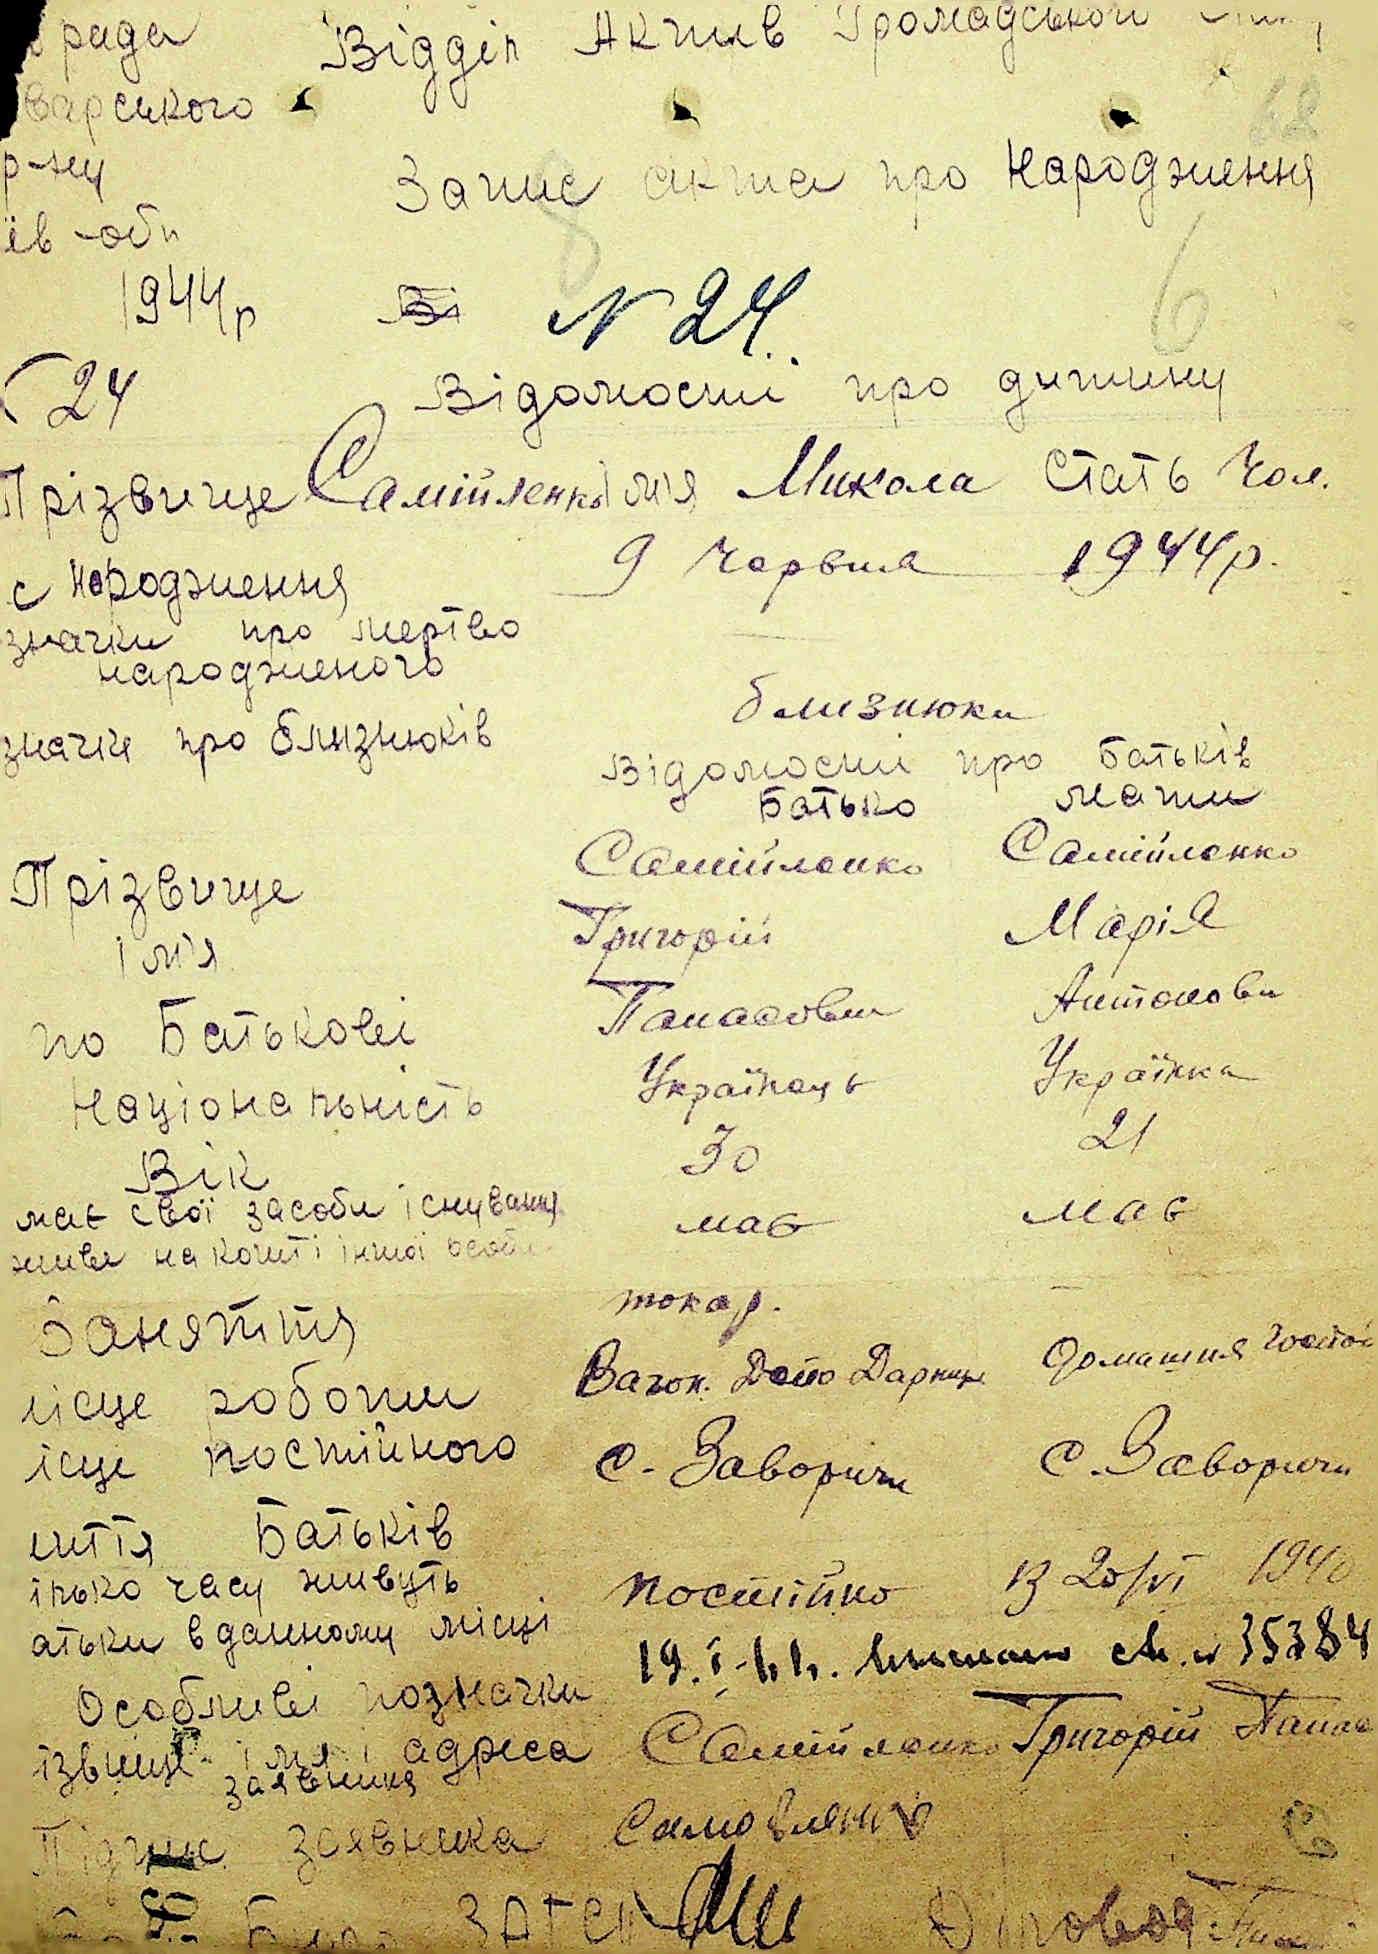 рада Відділ Актів Громадського
варського
р-ну Запис акта про народження
ів -обл
1944р N 24
24 Відомості про дитину
Прізвище Самійленко ім'я Микола Стать Чол.
с народження 9 Червня 1944р.
значки про мертво
народженого
значки про близнюків близнюки
Відомості про Батьків
Батько мати
Прізвище Самійленко Самійленко
ім'я Григорій Марія
по Батькові Панасович Антонови
Національність Українець Українка
Вік 30 21
має свої засоби існування має має
живе на кошті іншої особи
Заняття токар.
ісце роботи Вагон. Депо Дарниця домашня госпо
ісце постійного с. Заворичи с. Заворичи
иття Батьків
ілько часу живуть постійно із 20/VI 1940
атьки в данному місці
Особливі позначки 19. I-44. св. N 35384
ізвище ім'я і адреса Самійленко Григорій Панас
заявника
Підпис заявника Самойленко
Бюро ЗАГСу